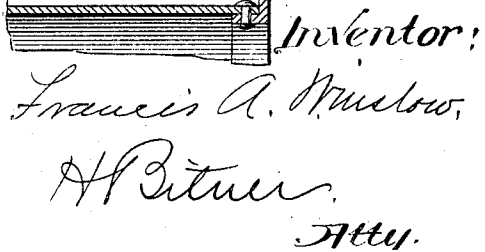 Inventor:
Francis A. Winslow.
H Bitner.
Atty.